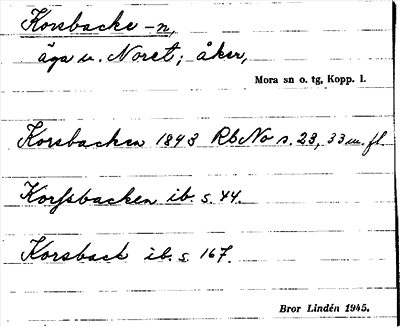 Korsbacke -n,
äga v. Noret; åker,
Mora sn o. tg, Kopp. l.
Korsbacken 1843 Rb No s. 23, 33 m. fl.
Korssbacken ib. s. 44.
Korsback ib. s. 167.
Bror Lindén 1945.